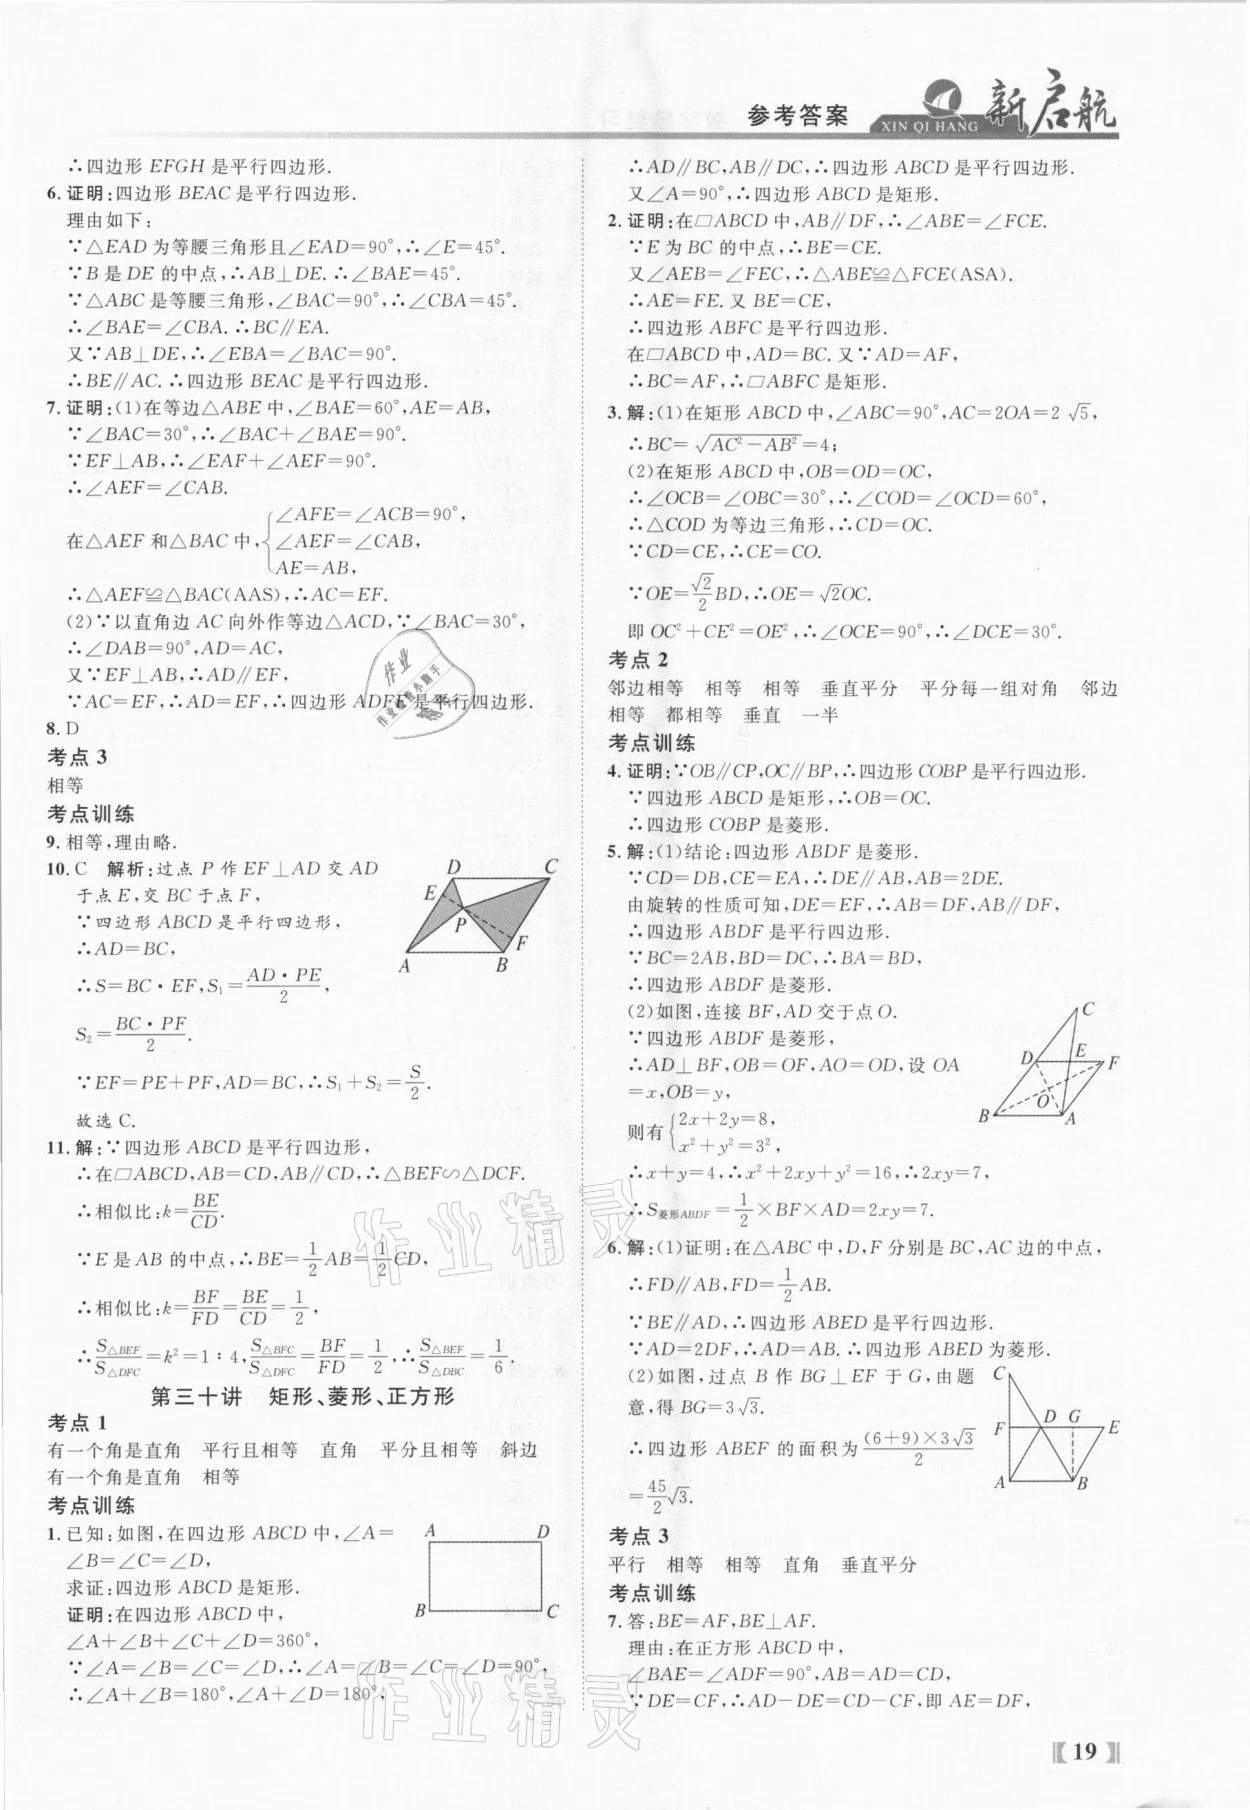 参考答案
XIN QI HANG
新启航
∴四边形 EFGH 是平行四边形.
6. 证明:四边形 BEAC 是平行四边形.
理由如下:
∵△EAD 为等腰三角形且∠EAD=90°,∴∠E=45°.
∵B 是 DE 的中点,∴AB⊥DE.∴∠BAE=45°.
∵△ABC 是等腰三角形,∠BAC=90°,∴∠CBA=45°.
∴∠BAE=∠CBA.∴BC∥EA.
又∵AB⊥DE,∴∠EBA=∠BAC=90°.
∴BE∥AC.∴四边形 BEAC 是平行四边形.
7. 证明:(1)在等边△ABE 中,∠BAE=60°,AE=AB,
∵∠BAC=30°,∴∠BAC+∠BAE=90°.
∵EF⊥AB,∴∠EAF+∠AEF=90°.
∴∠AEF=∠CAB.
在△AEF 和△BAC 中,{∠AFE=∠ACB=90°,
∠AEF=∠CAB,
AE=AB,
∴△AEF≌△BAC(AAS),∴AC=EF.
(2)∵以直角边 AC 向外作等边△ACD,∵∠BAC=30°,
∴∠DAB=90°,AD=AC,
又∵EF⊥AB,∴AD∥EF,
∵AC=EF,∴AD=EF,∴四边形 ADFE 是平行四边形.
8. D
考点 3
相等
考点训练
9. 相等,理由略.
10. C 解析:过点 P 作 EF⊥AD 交 AD
于点 E,交 BC 于点 F,
∵四边形 ABCD 是平行四边形,
∴AD=BC,
∴S=BC·EF,S₁=AD·PE/2,
S₂=BC·PF/2.
∵EF=PE+PF,AD=BC,∴S₁+S₂=S/2.
故选 C.
D C E P F A B
11. 解:∵四边形 ABCD 是平行四边形,
∴在□ABCD,AB=CD,AB∥CD,∴△BEF∽△DCF.
∴相似比:k=BE/CD.
∵E 是 AB 的中点,∴BE=1/2AB=1/2CD,
∴相似比:k=BF/FD=BE/CD=1/2,
∴S△BEF/S△DFC=k²=1∶4,S△BFC/S△DFC=BF/FD=1/2,∴S△BEF/S△DBC=1/6.
第三十讲 矩形、菱形、正方形
考点 1
有一个角是直角 平行且相等 直角 平分且相等 斜边
有一个角是直角 相等
考点训练
1. 已知:如图,在四边形 ABCD 中,∠A=
∠B=∠C=∠D,
求证:四边形 ABCD 是矩形.
证明:在四边形 ABCD 中,
∠A+∠B+∠C+∠D=360°,
∵∠A=∠B=∠C=∠D,∴∠A=∠B=∠C=∠D=90°,
∴∠A+∠B=180°,∠A+∠D=180°,
A D B C
∴AD∥BC,AB∥DC,∴四边形 ABCD 是平行四边形.
又∠A=90°,∴四边形 ABCD 是矩形.
2. 证明:在□ABCD 中,AB∥DF,∴∠ABE=∠FCE.
∵E 为 BC 的中点,∴BE=CE.
又∠AEB=∠FEC,∴△ABE≌△FCE(ASA).
∴AE=FE.又 BE=CE,
∴四边形 ABFC 是平行四边形.
在□ABCD 中,AD=BC.又∵AD=AF,
∴BC=AF,∴□ABFC 是矩形.
3. 解:(1)在矩形 ABCD 中,∠ABC=90°,AC=2OA=2√5,
∴BC=√(AC²-AB²)=4;
(2)在矩形 ABCD 中,OB=OD=OC,
∴∠OCB=∠OBC=30°,∴∠COD=∠OCD=60°,
∴△COD 为等边三角形,∴CD=OC.
∵CD=CE,∴CE=CO.
∵OE=√2/2BD,∴OE=√2OC.
即 OC²+CE²=OE²,∴∠OCE=90°,∴∠DCE=30°.
考点 2
邻边相等 相等 相等 垂直平分 平分每一组对角 邻边
相等 都相等 垂直 一半
考点训练
4. 证明:∵OB∥CP,OC∥BP,∴四边形 COBP 是平行四边形.
∵四边形 ABCD 是矩形,∴OB=OC.
∴四边形 COBP 是菱形.
5. 解:(1)结论:四边形 ABDF 是菱形.
∵CD=DB,CE=EA,∴DE∥AB,AB=2DE.
由旋转的性质可知,DE=EF,∴AB=DF,AB∥DF,
∴四边形 ABDF 是平行四边形.
∵BC=2AB,BD=DC,∴BA=BD,
∴四边形 ABDF 是菱形.
(2)如图,连接 BF,AD 交于点 O.
∵四边形 ABDF 是菱形,
∴AD⊥BF,OB=OF,AO=OD,设 OA
=x,OB=y,
则有{2x+2y=8,
x²+y²=3²,
∴x+y=4,∴x²+2xy+y²=16,∴2xy=7,
∴S菱形ABDF=1/2×BF×AD=2xy=7.
C D E F O B A
6. 解:(1)证明:在△ABC 中,D,F 分别是 BC,AC 边的中点,
∴FD∥AB,FD=1/2AB.
∵BE∥AD,∴四边形 ABED 是平行四边形.
∵AD=2DF,∴AD=AB.∴四边形 ABED 为菱形.
(2)如图,过点 B 作 BG⊥EF 于 G,由题
意,得 BG=3√3.
∴四边形 ABEF 的面积为(6+9)×3√3/2
=45/2√3.
C F D G E A B
考点 3
平行 相等 相等 直角 垂直平分
考点训练
7. 答:BE=AF,BE⊥AF.
理由:在正方形 ABCD 中,
∠BAE=∠ADF=90°,AB=AD=CD,
∵DE=CF,∴AD-DE=CD-CF,即 AE=DF,
作业精灵
作业精灵
19